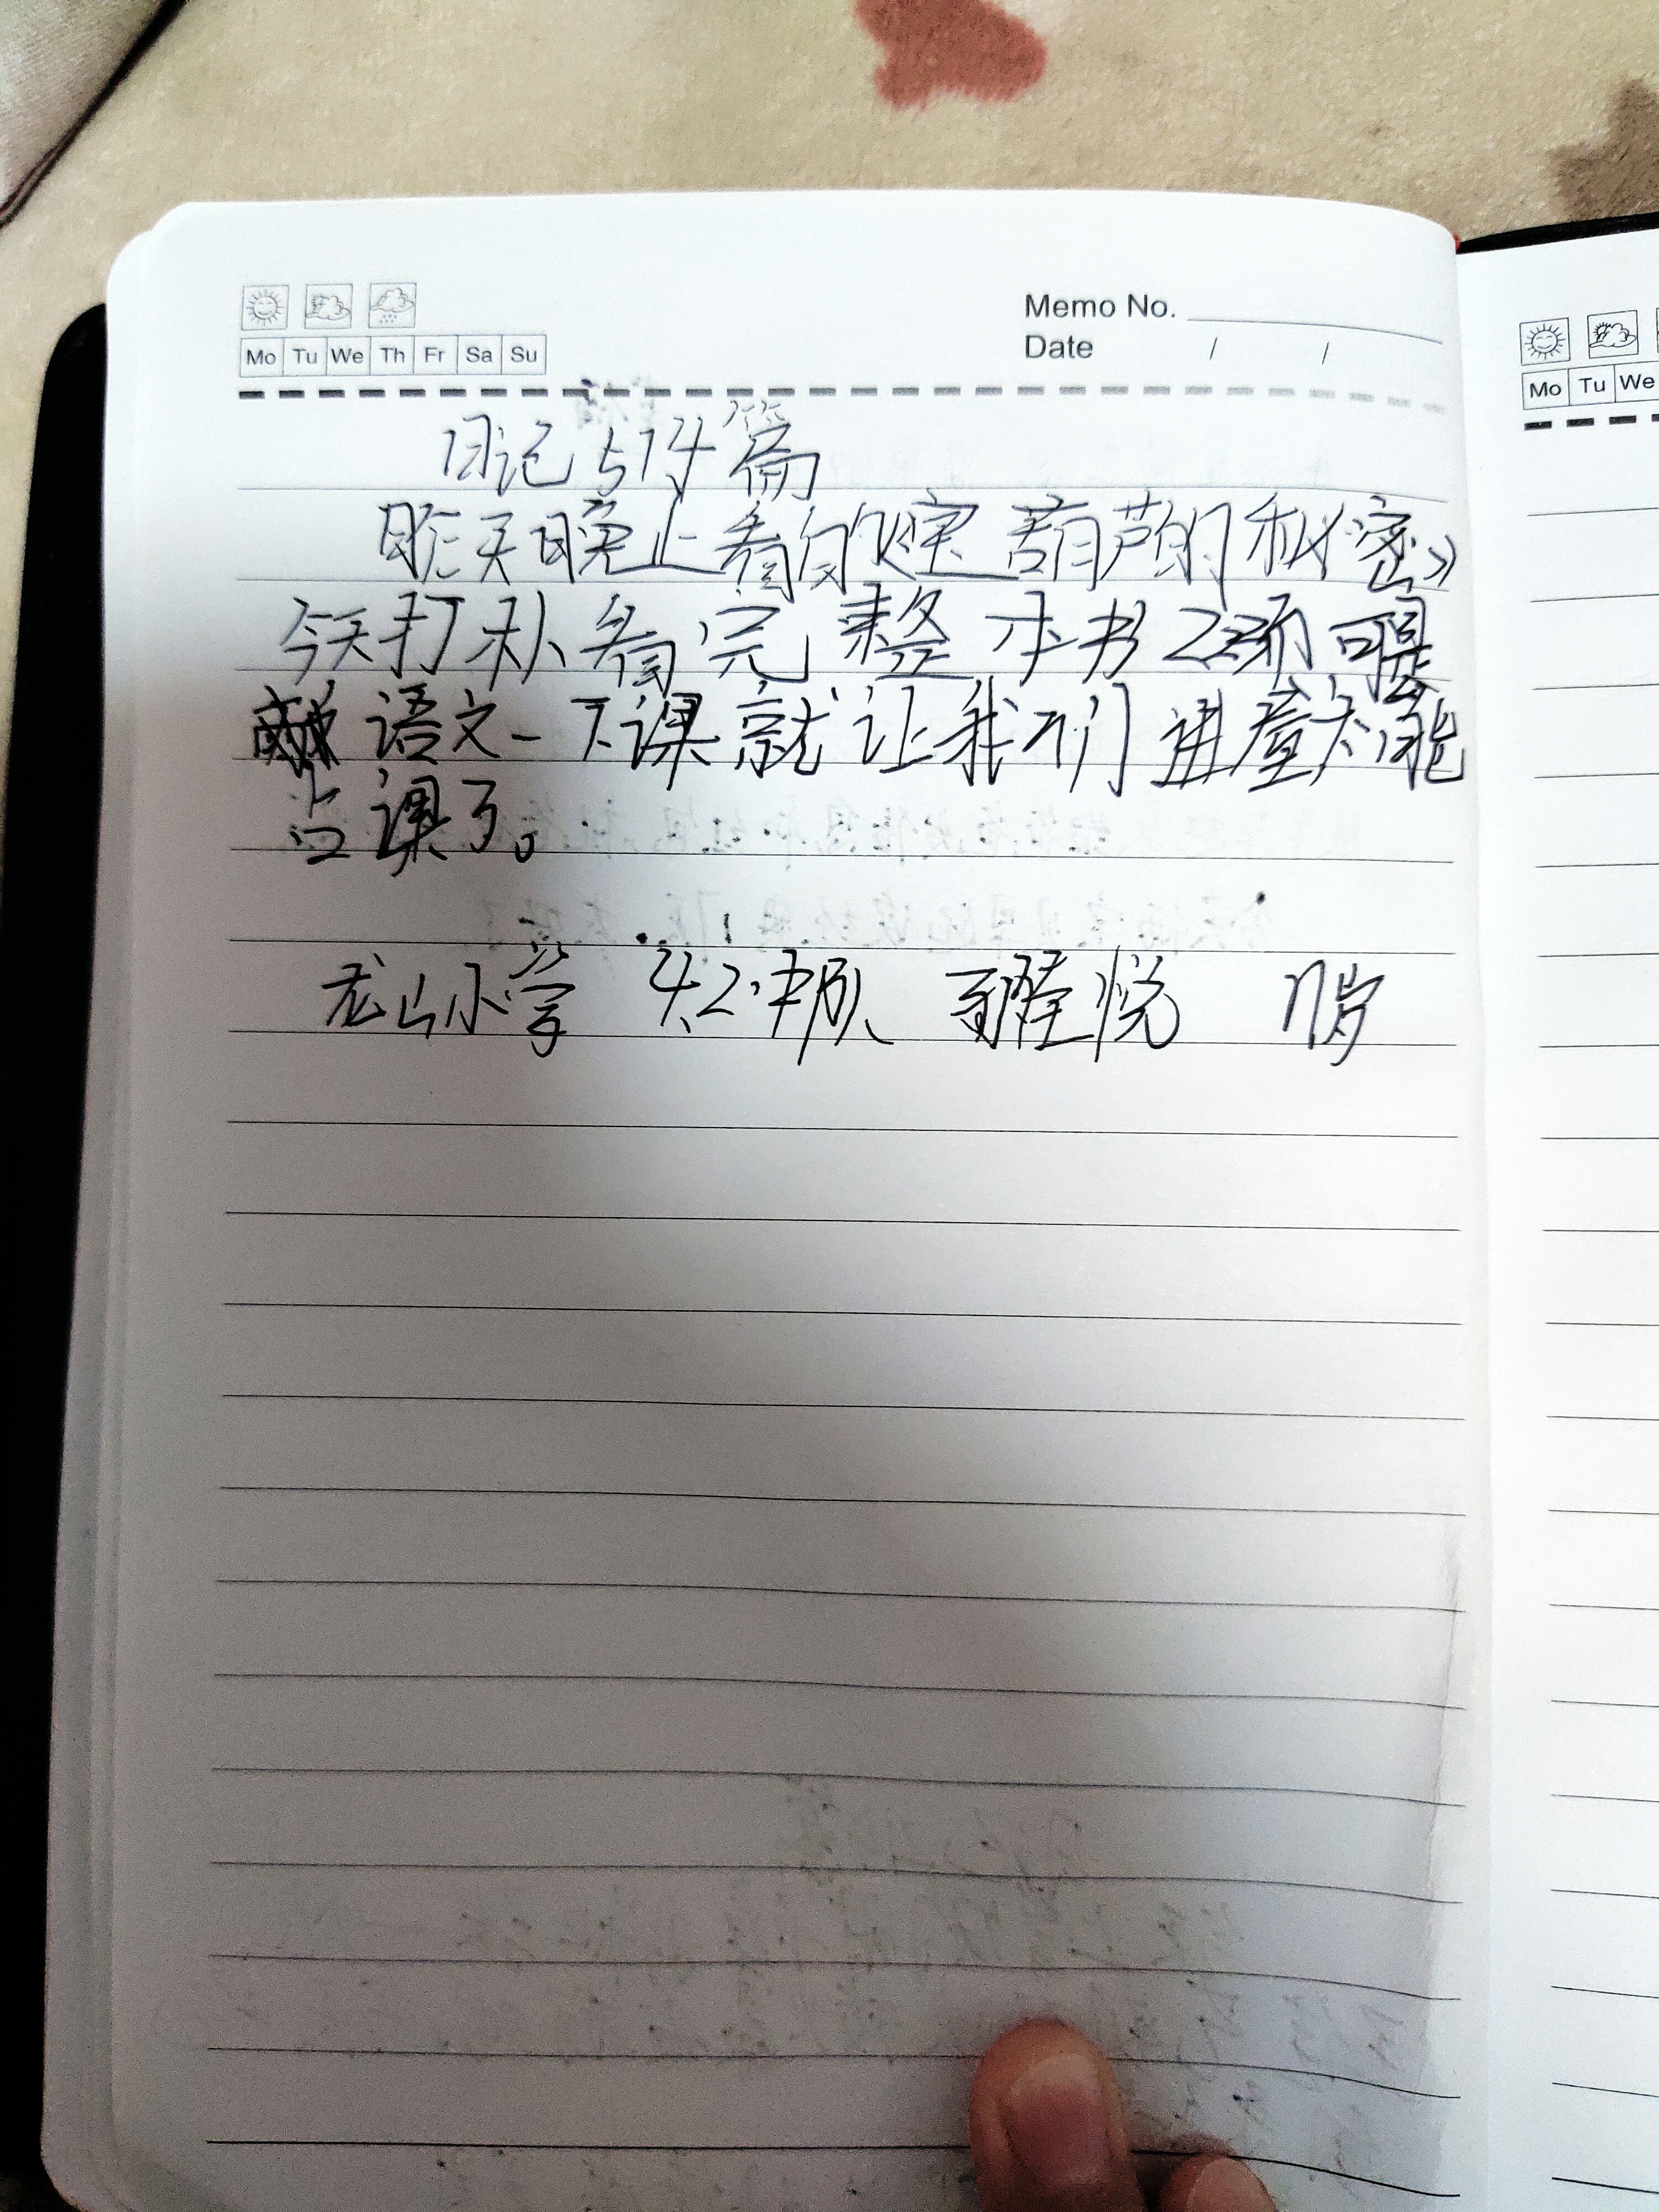 Mo Tu We Th Fr Sa Su
Memo No.
Date / /
日记574篇
昨天晚上看的《宝葫芦的秘密》
今天打扑看完整本书
语文一下课就让我们进
课了。
龙山小学 4.2中队 悦 11岁
Mo Tu We